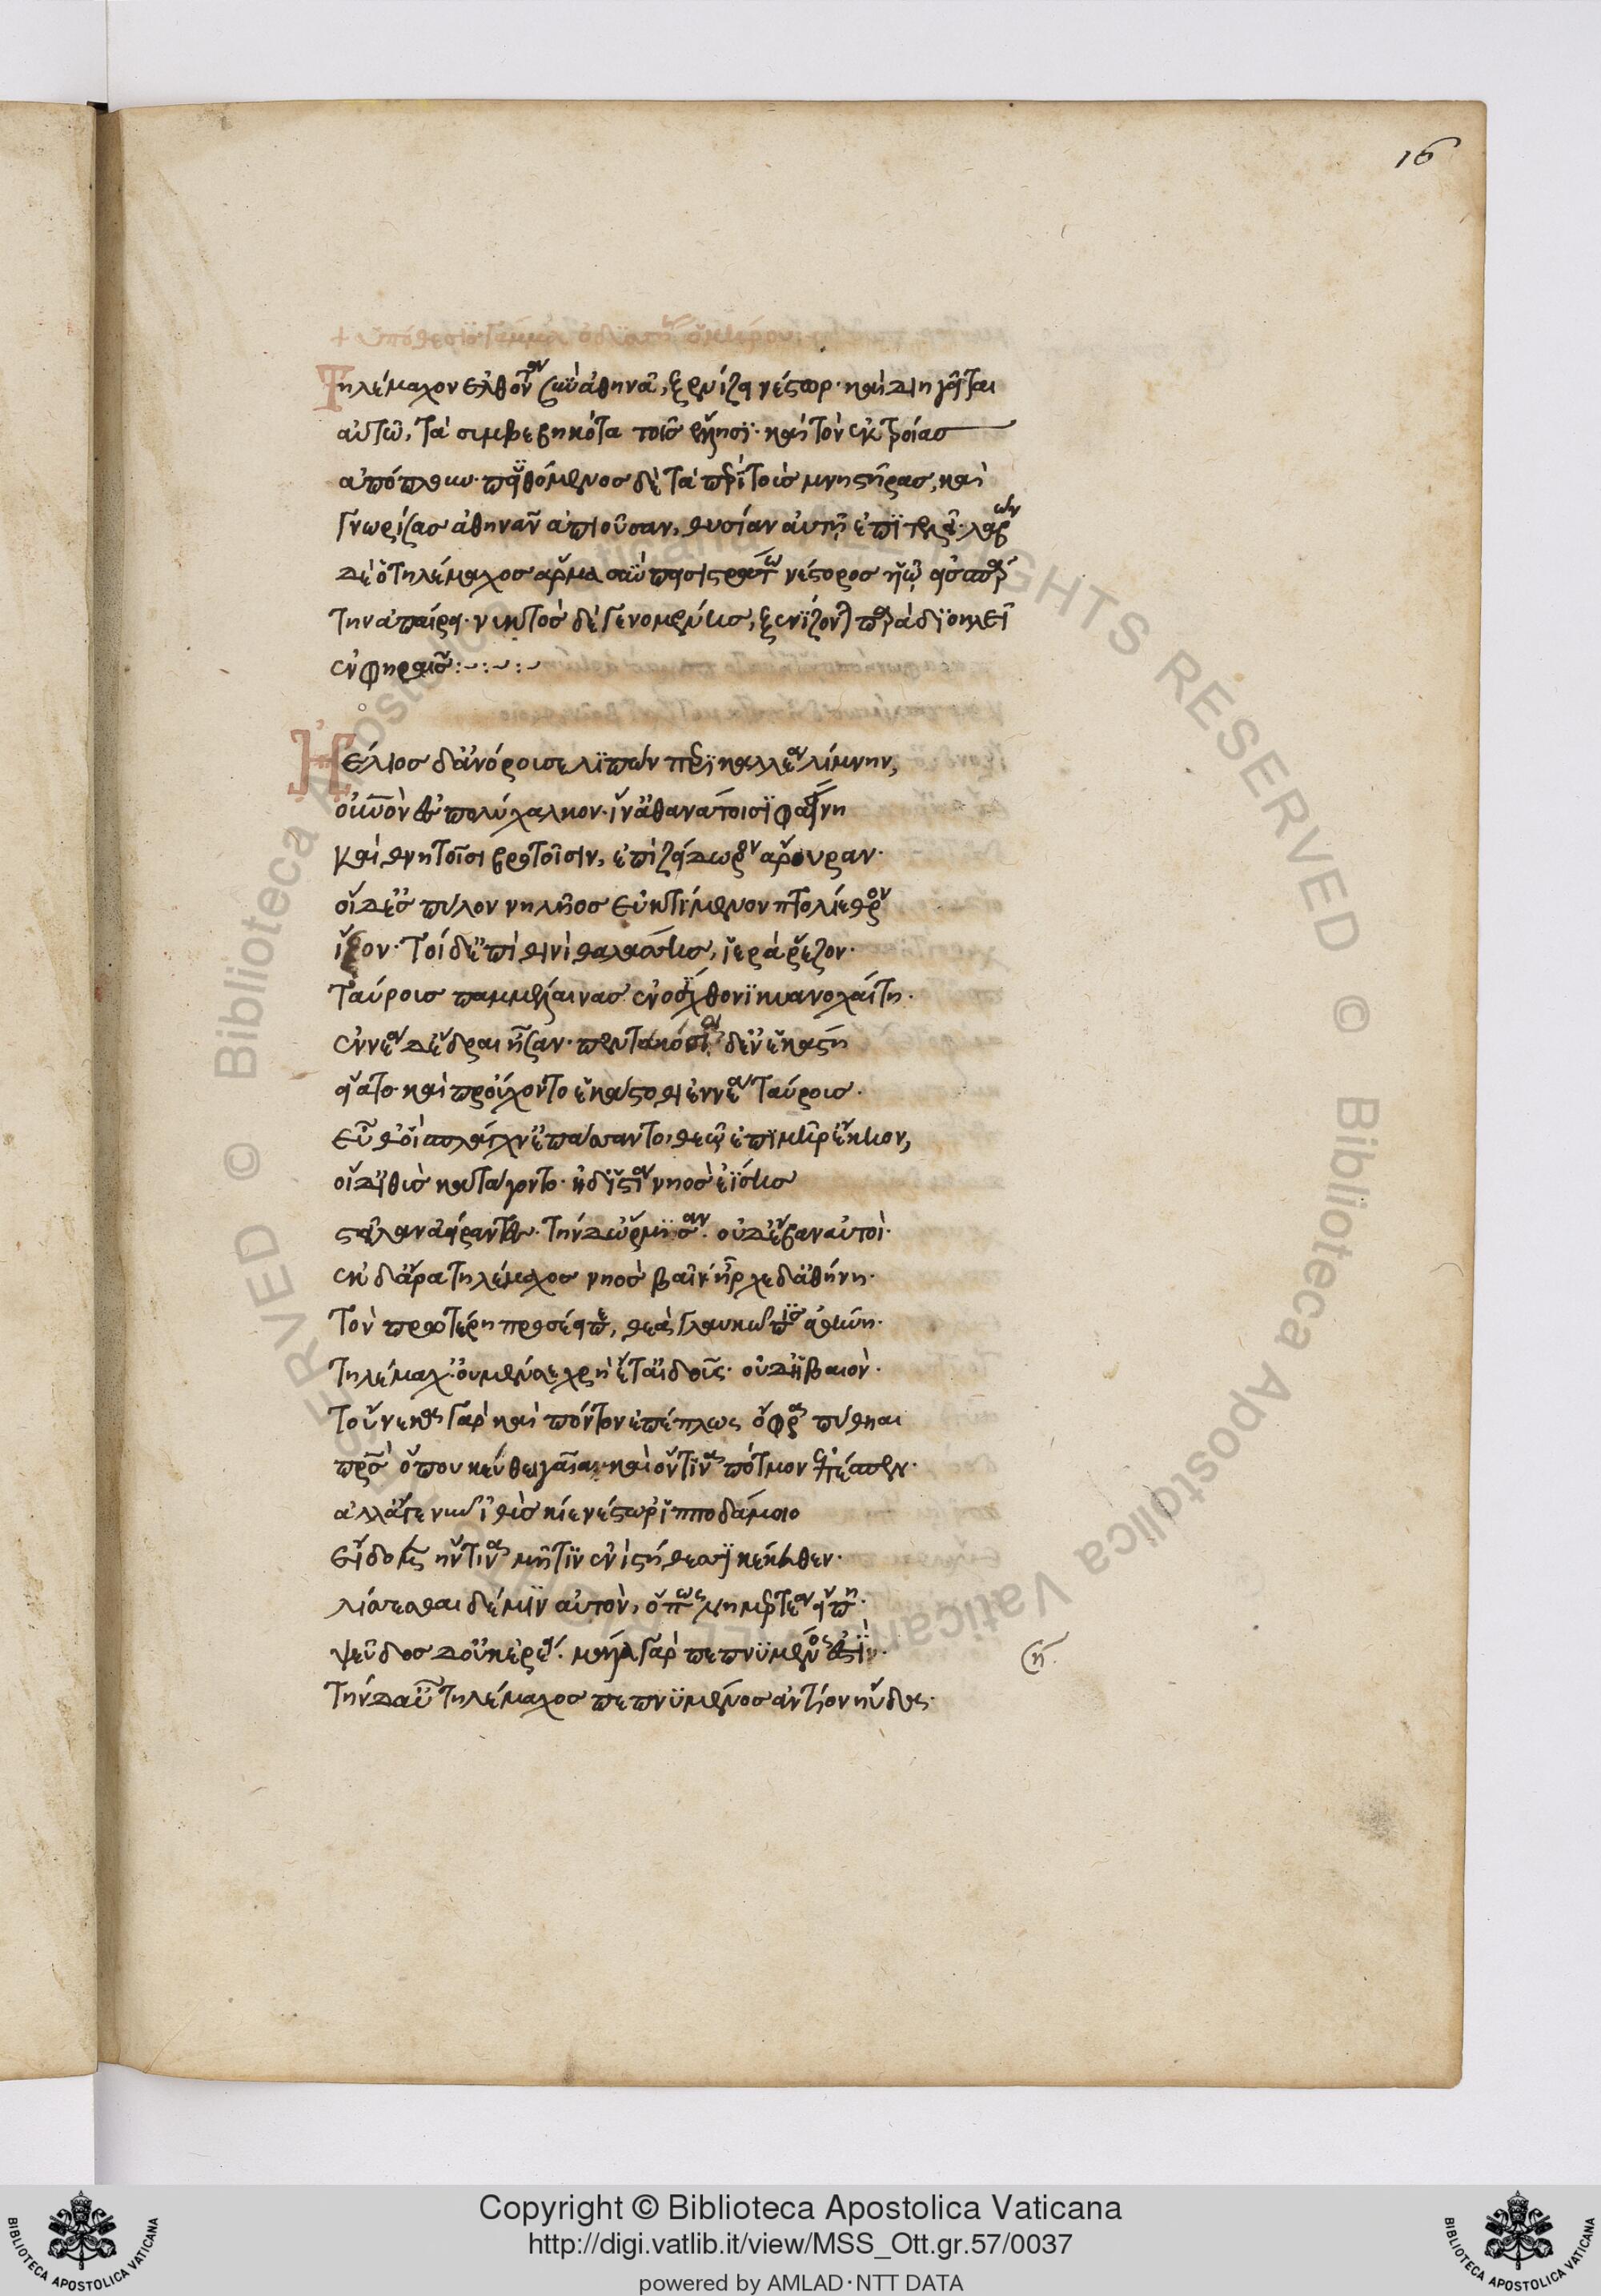 16
+ ὑπόθεσις γάμμα ὀδυσσείας ὁμήρου
Τηλέμαχον ἐλθόντα σὺν ἀθηνᾶ, ξενίζει νέστωρ· καὶ διηγεῖται
αὐτῶ, τὰ συμβεβηκότα τοῖς ἕλλησι· καὶ τὸν ἐκ τροίας
ἀπόπλουν· πυθόμενος δὲ τὰ περὶ τοὺς μνηστῆρας, καὶ
γνωρίσας ἀθηνᾶν ἀπιοῦσαν, θυσίαν αὐτῇ ἐπιτελεῖ· λαβὼν
δὲ ὁ τηλέμαχος ἅρμα νέστορος εἰς
τὴν ἀπαίρει· νυκτὸς δὲ γενομένης, ξενίζονται παρὰ διοκλεῖ
ἐν φηραῖς :-:-:-
Ηέλιος δ' ἀνόρουσε λιπὼν περικαλλέα λίμνην,
οὐρανὸν ἐς πολύχαλκον· ἵν' ἀθανάτοισι φαείνη
καὶ θνητοῖσι βροτοῖσιν, ἐπὶ ζείδωρον ἄρουραν·
οἱ δὲ πύλον νηλῆος ἐυκτίμενον πτολίεθρον
ἷξον· τοὶ δ' ἐπὶ θινὶ θαλάσσης, ἱερὰ ῥέζον·
ταύρους παμμέλαινας ἐνοσίχθονι κυανοχαίτη·
ἐννέα δ' ἕδραι ἦσαν· πεντακόσιοι δ' ἐν ἑκάστη
εἵατο· καὶ προὔχοντο ἑκάστοθι ἐννέα ταύρους·
εὖθ' οἱ σπλάγχν' ἐπάσαντο, θεῶ ἐπὶ μηρί' ἔκηον,
οἱ δ' ἰθὺς κατάγοντο· ἠδ' ἱστία νηὸς ἐίσης
στεῖλαν ἀείραντες· τὴν δ' ὥρμισαν· οὐδ' ἔβαν αὐτοὶ·
ἐκ δ' ἄρα τηλέμαχος νηὸς βαῖν' ἦρχε δ' ἀθήνη·
τὸν προτέρη προσέειπε, θεὰ γλαυκῶπις ἀθήνη·
τηλέμαχ' οὐ μέν σε χρὴ ἔτ' αἰδοῦς· οὐδ' ἠβαιὸν·
τοὔνεκα γὰρ καὶ πόντον ἐπέπλως ὄφρα πύθηαι
πατρὸς ὅπου κεύθει γαῖα· καὶ ὅντινα πότμον ἐπέσπεν·
ἀλλ' ἄγε νῦν ἰθὺς κίε νέστωρ ἱπποδάμοιο
εἴδομεν ἥντινα μῆτιν ἐνὶ στήθεσι κέκευθεν·
λίσσεσθαι δέ μιν αὐτὸν, ὅπως νημερτέα εἴπη·
ψεῦδος δ' οὐκ ἐρέει· μάλα γὰρ πεπνυμένος ἐστὶν·
τὴν δ' αὖ τηλέμαχος πεπνυμένος ἀντίον ηὔδα·
η
Copyright © Biblioteca Apostolica Vaticana
http://digi.vatlib.it/view/MSS_Ott.gr.57/0037
powered by AMLAD·NTT DATA